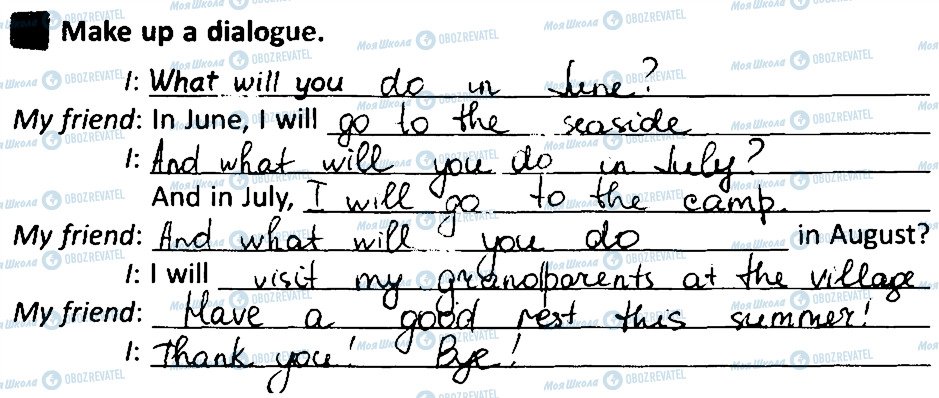 Make up a dialogue.
I: What will you do in June?
My friend: In June, I will go to the seaside
I: And what will you do in July?
And in July, I will go to the camp.
My friend: And what will you do in August?
I: I will visit my grandparents at the village
My friend: Have a good rest this summer!
I: Thank you! Bye!